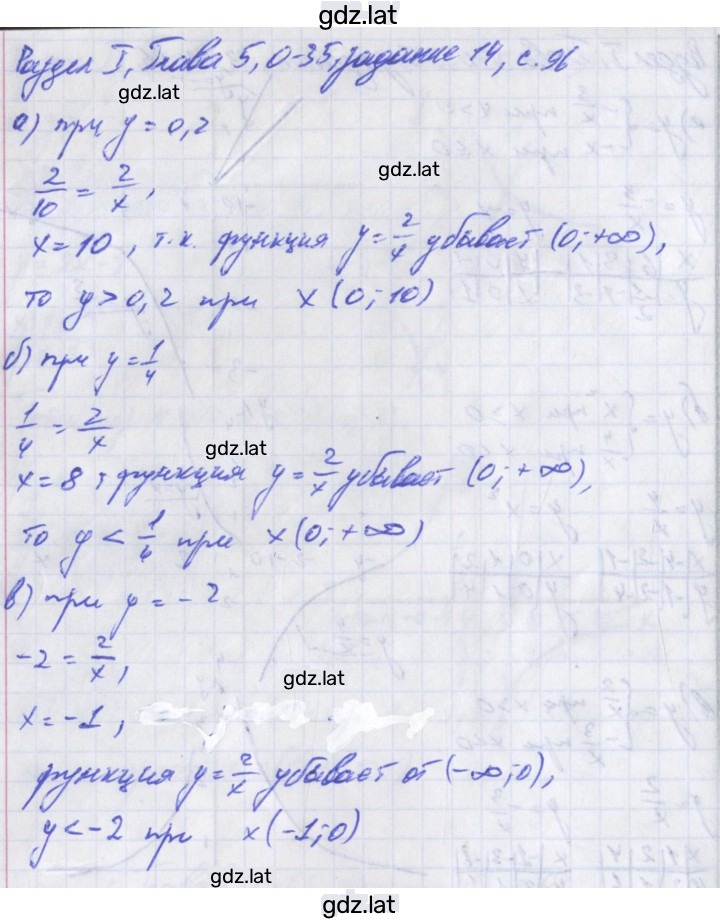 gdz.lat
Раздел I, Глава 5, О-35, задание 14, с. 96
gdz.lat
а) при y = 0,2
gdz.lat
2/10 = 2/x,
x = 10, т.к. функция y = 2/x убывает (0; +∞),
то y > 0,2 при x (0; 10)
б) при y = 1/4
1/4 = 2/x
gdz.lat
x = 8, функция y = 2/x убывает (0; +∞),
то y < 1/4 при x (0; +∞)
в) при y = -2
-2 = 2/x,
gdz.lat
x = -1,
функция y = 2/x убывает от (-∞; 0),
y < -2 при x (-1; 0)
gdz.lat
gdz.lat